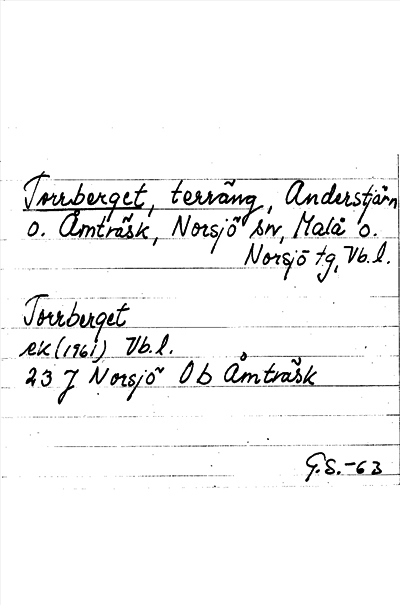 Torrberget, terräng, Anderstjärn
o. Åmträsk, Norsjö sn, Malå o.
Norsjö tg, Vb.l.
Torrberget
ek (1961) Vb.l.
23 J Norsjö Ob Åmträsk
G.S.-63